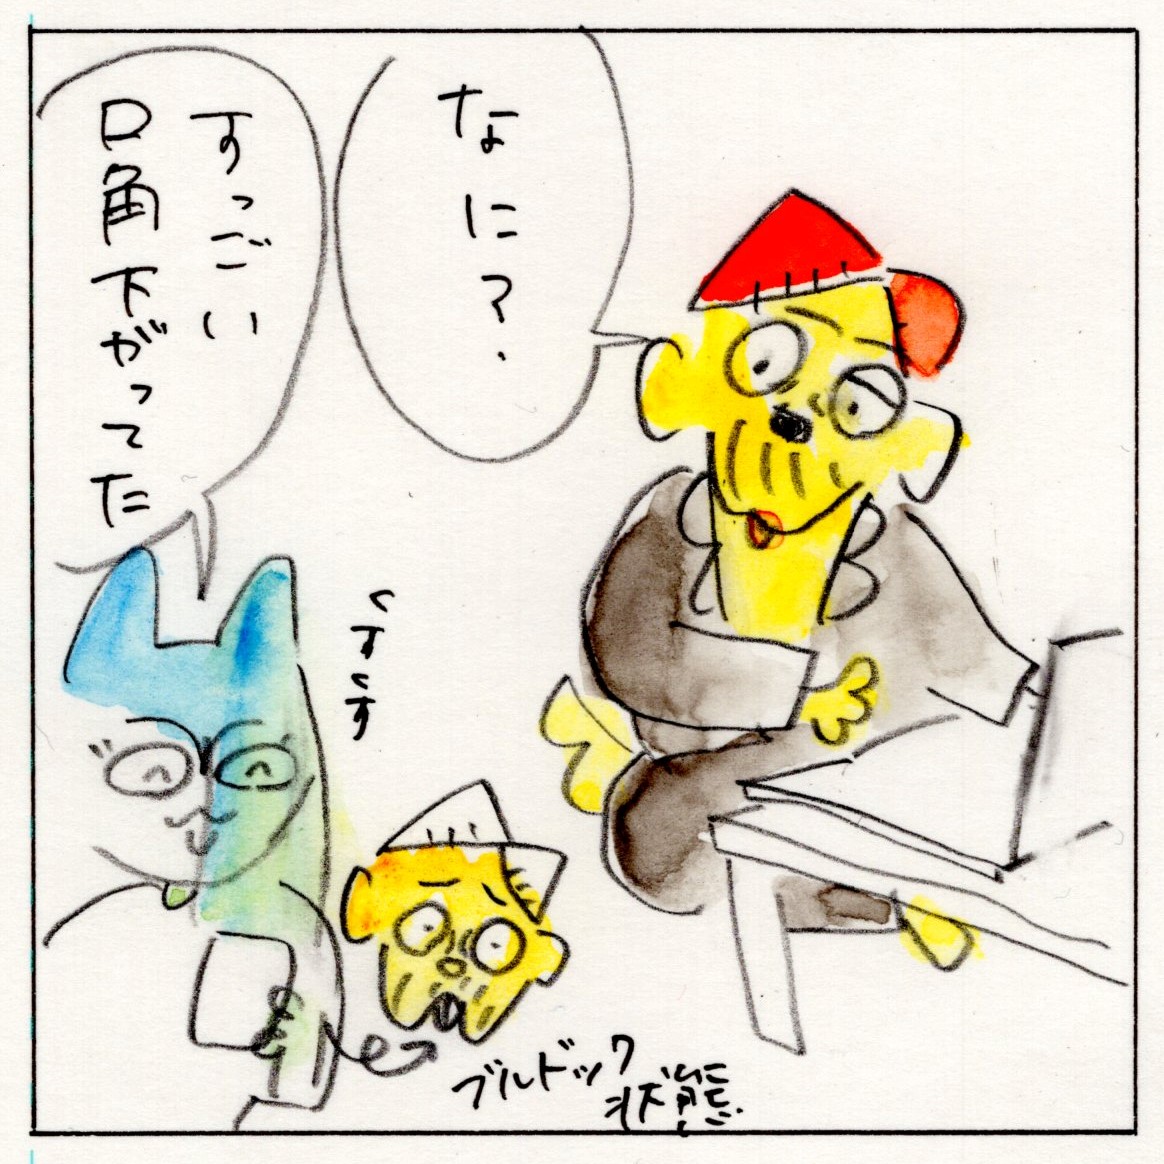 なに？
すっごい
口角下がってた
くすくす
ブルドック
状態